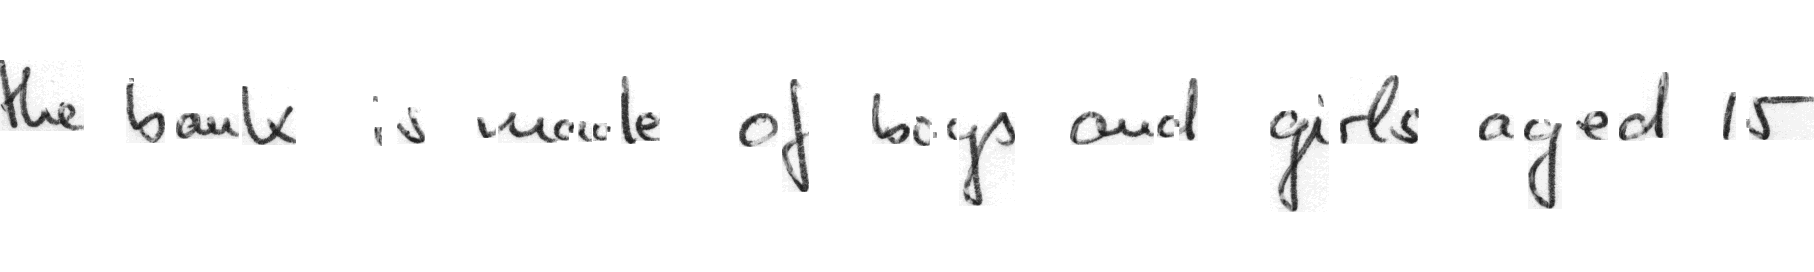 the bank is made of boys and girls aged 15